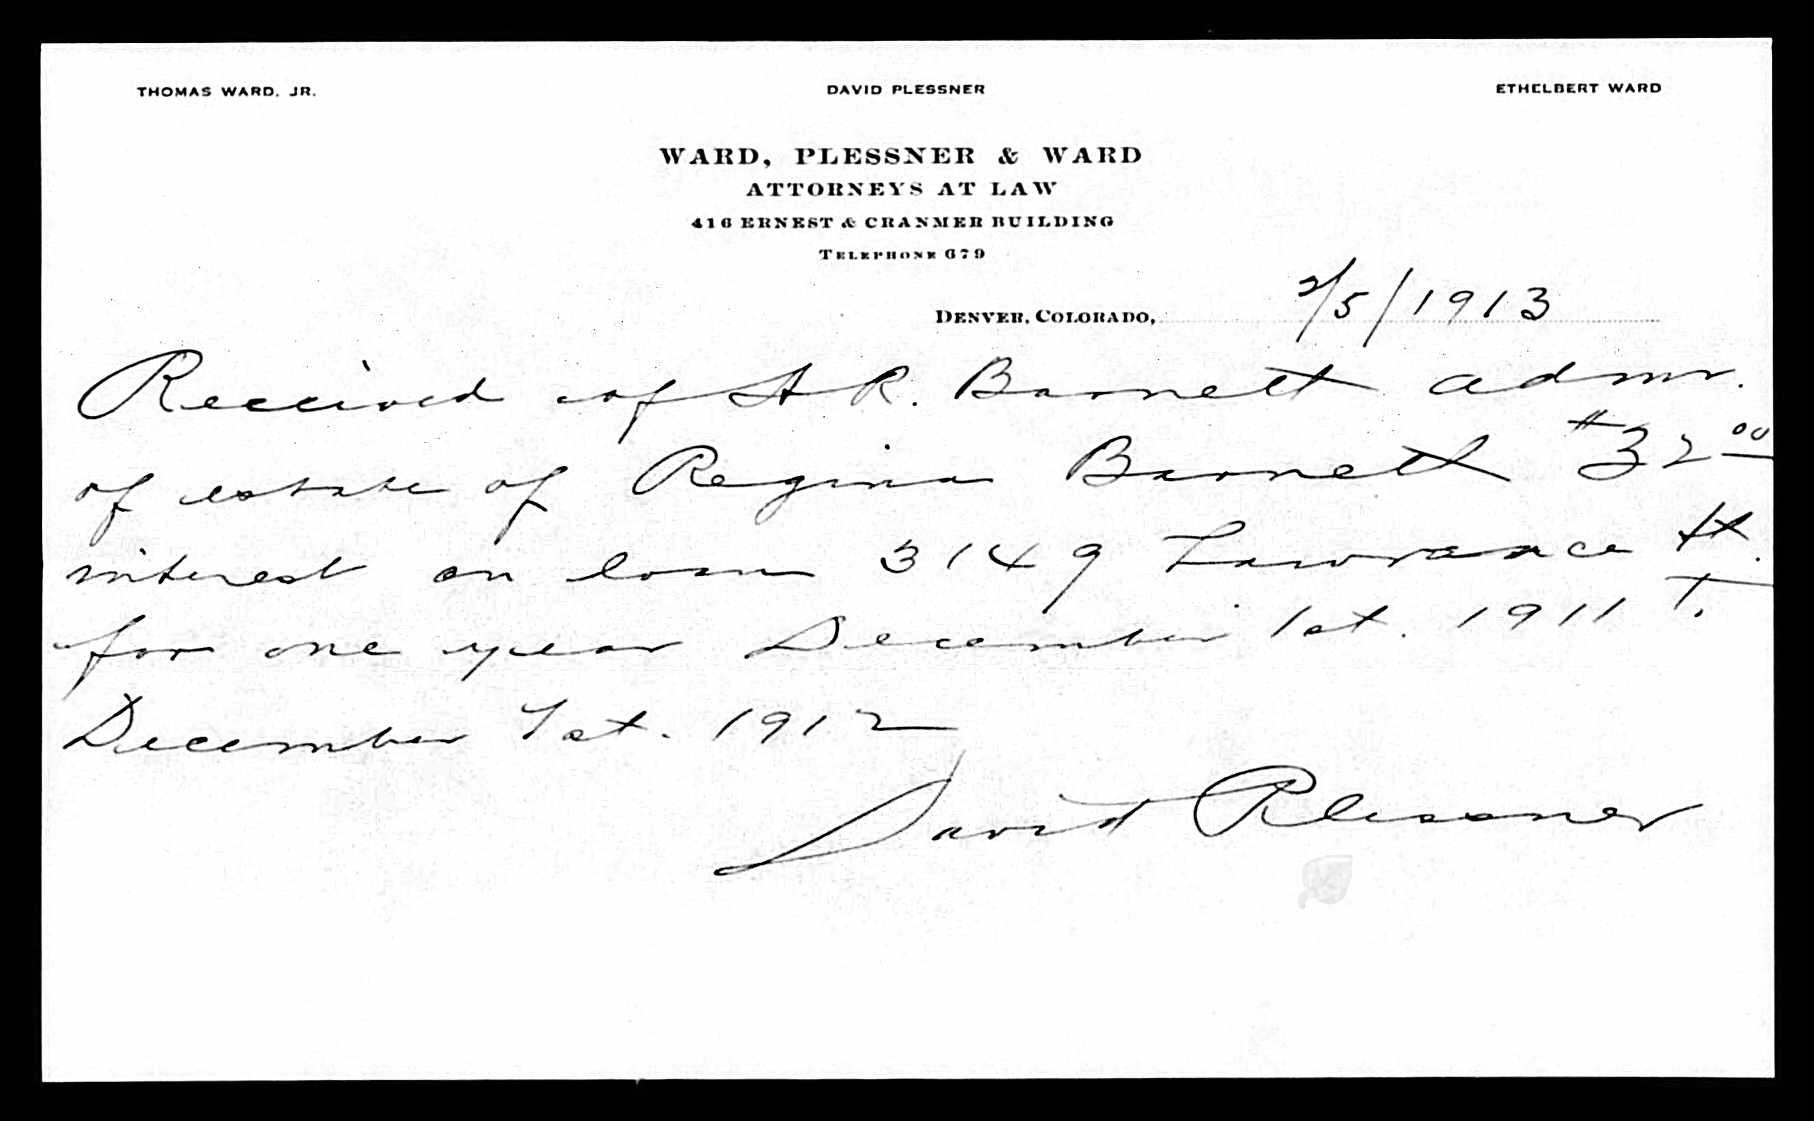 THOMAS WARD, JR. DAVID PLESSNER ETHELBERT WARD
WARD, PLESSNER & WARD
ATTORNEYS AT LAW
416 ERNEST & CRANMER BUILDING
TELEPHONE 679
DENVER, COLORADO, 2/5/1913
Received of A R. Barnett admr.
of estate of Regina Barnett $32 00
interest on loan 3149 Lawrance St.
for one year December 1st. 1911 T.
December 1st. 1912
David Plessner